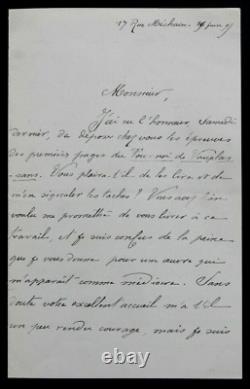 17 Rue Méchain. 14 juin 97
Monsieur,
J'ai eu l'honneur, samedi
dernier, de déposer chez vous les épreuves
des premières pages du
sans. Vous plaira-t-il de les lire et de
m'en signaler les taches ? Vous avez bien
voulu me promettre de vous livrer à ce
travail, et je suis confus de la peine
que je vous donne pour une œuvre qui
m'apparaît comme médiocre. Sans
doute votre excellent accueil m'a-t-il
un peu rendu courage, mais je suis